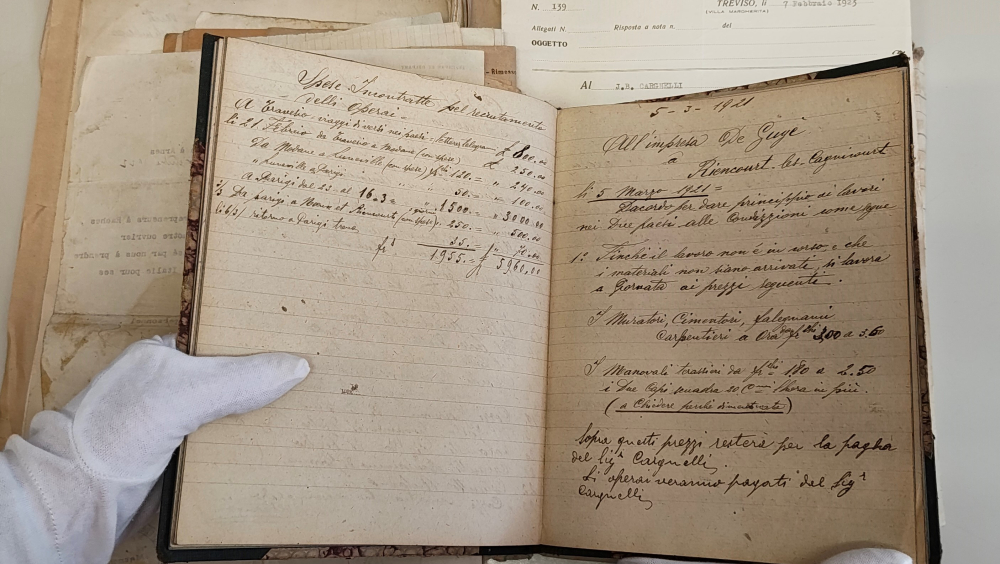 N. 159
TREVISO, li 7 Febbraio 1923
(VILLA MARGHERITA)
Allegati N. Risposta a nota n. del
OGGETTO
Al J.B. CARGNELLI
Spese Incontratte pel recrutamento
delli Operai =
A Traveso, viaggi diversi nei paesi, lettere telegram £ 800.00
li 21 Febrio da Traveso a Modane (in spese) £ 250.00
Da Modane a Luneville (in spese) 120.= " 240.00
" Luneville a Parigi 50.= " 100.00
A Parigi dal 23 al 16.3 = 1500.= " 3000.00
Da parigi a et Riencourt (in spese) 250.= " 500.00
ritorno a Parigi treno 35.= " 70.00
1955.= £ 5960.00
5-3-1921
All'impresa De Gugé
a
Riencourt-les-Cagnicourt
li 5 Marzo 1921=
Dacordo per dare princippio ai lavori
nei Due paesi alle Condizzioni come segue
1º Finchè il lavoro non é in corso e che
i materiali non siano arrivati, si lavora
a Giornata ai prezzi seguente.
I Muratori, Cimentori, falegnami
Carpentieri a Ora 3,00 a 3.50
I Manovali terassini da 180 a 2.50
i Due Capi squadra 20 C= l'hora in più.
(a Chidere perchè dimenticate)
Sopra questi prezzi resterà per la paghia
del Sigr Cargnelli,
Li operai veranno pagati dal Sigr
Cargnelli,